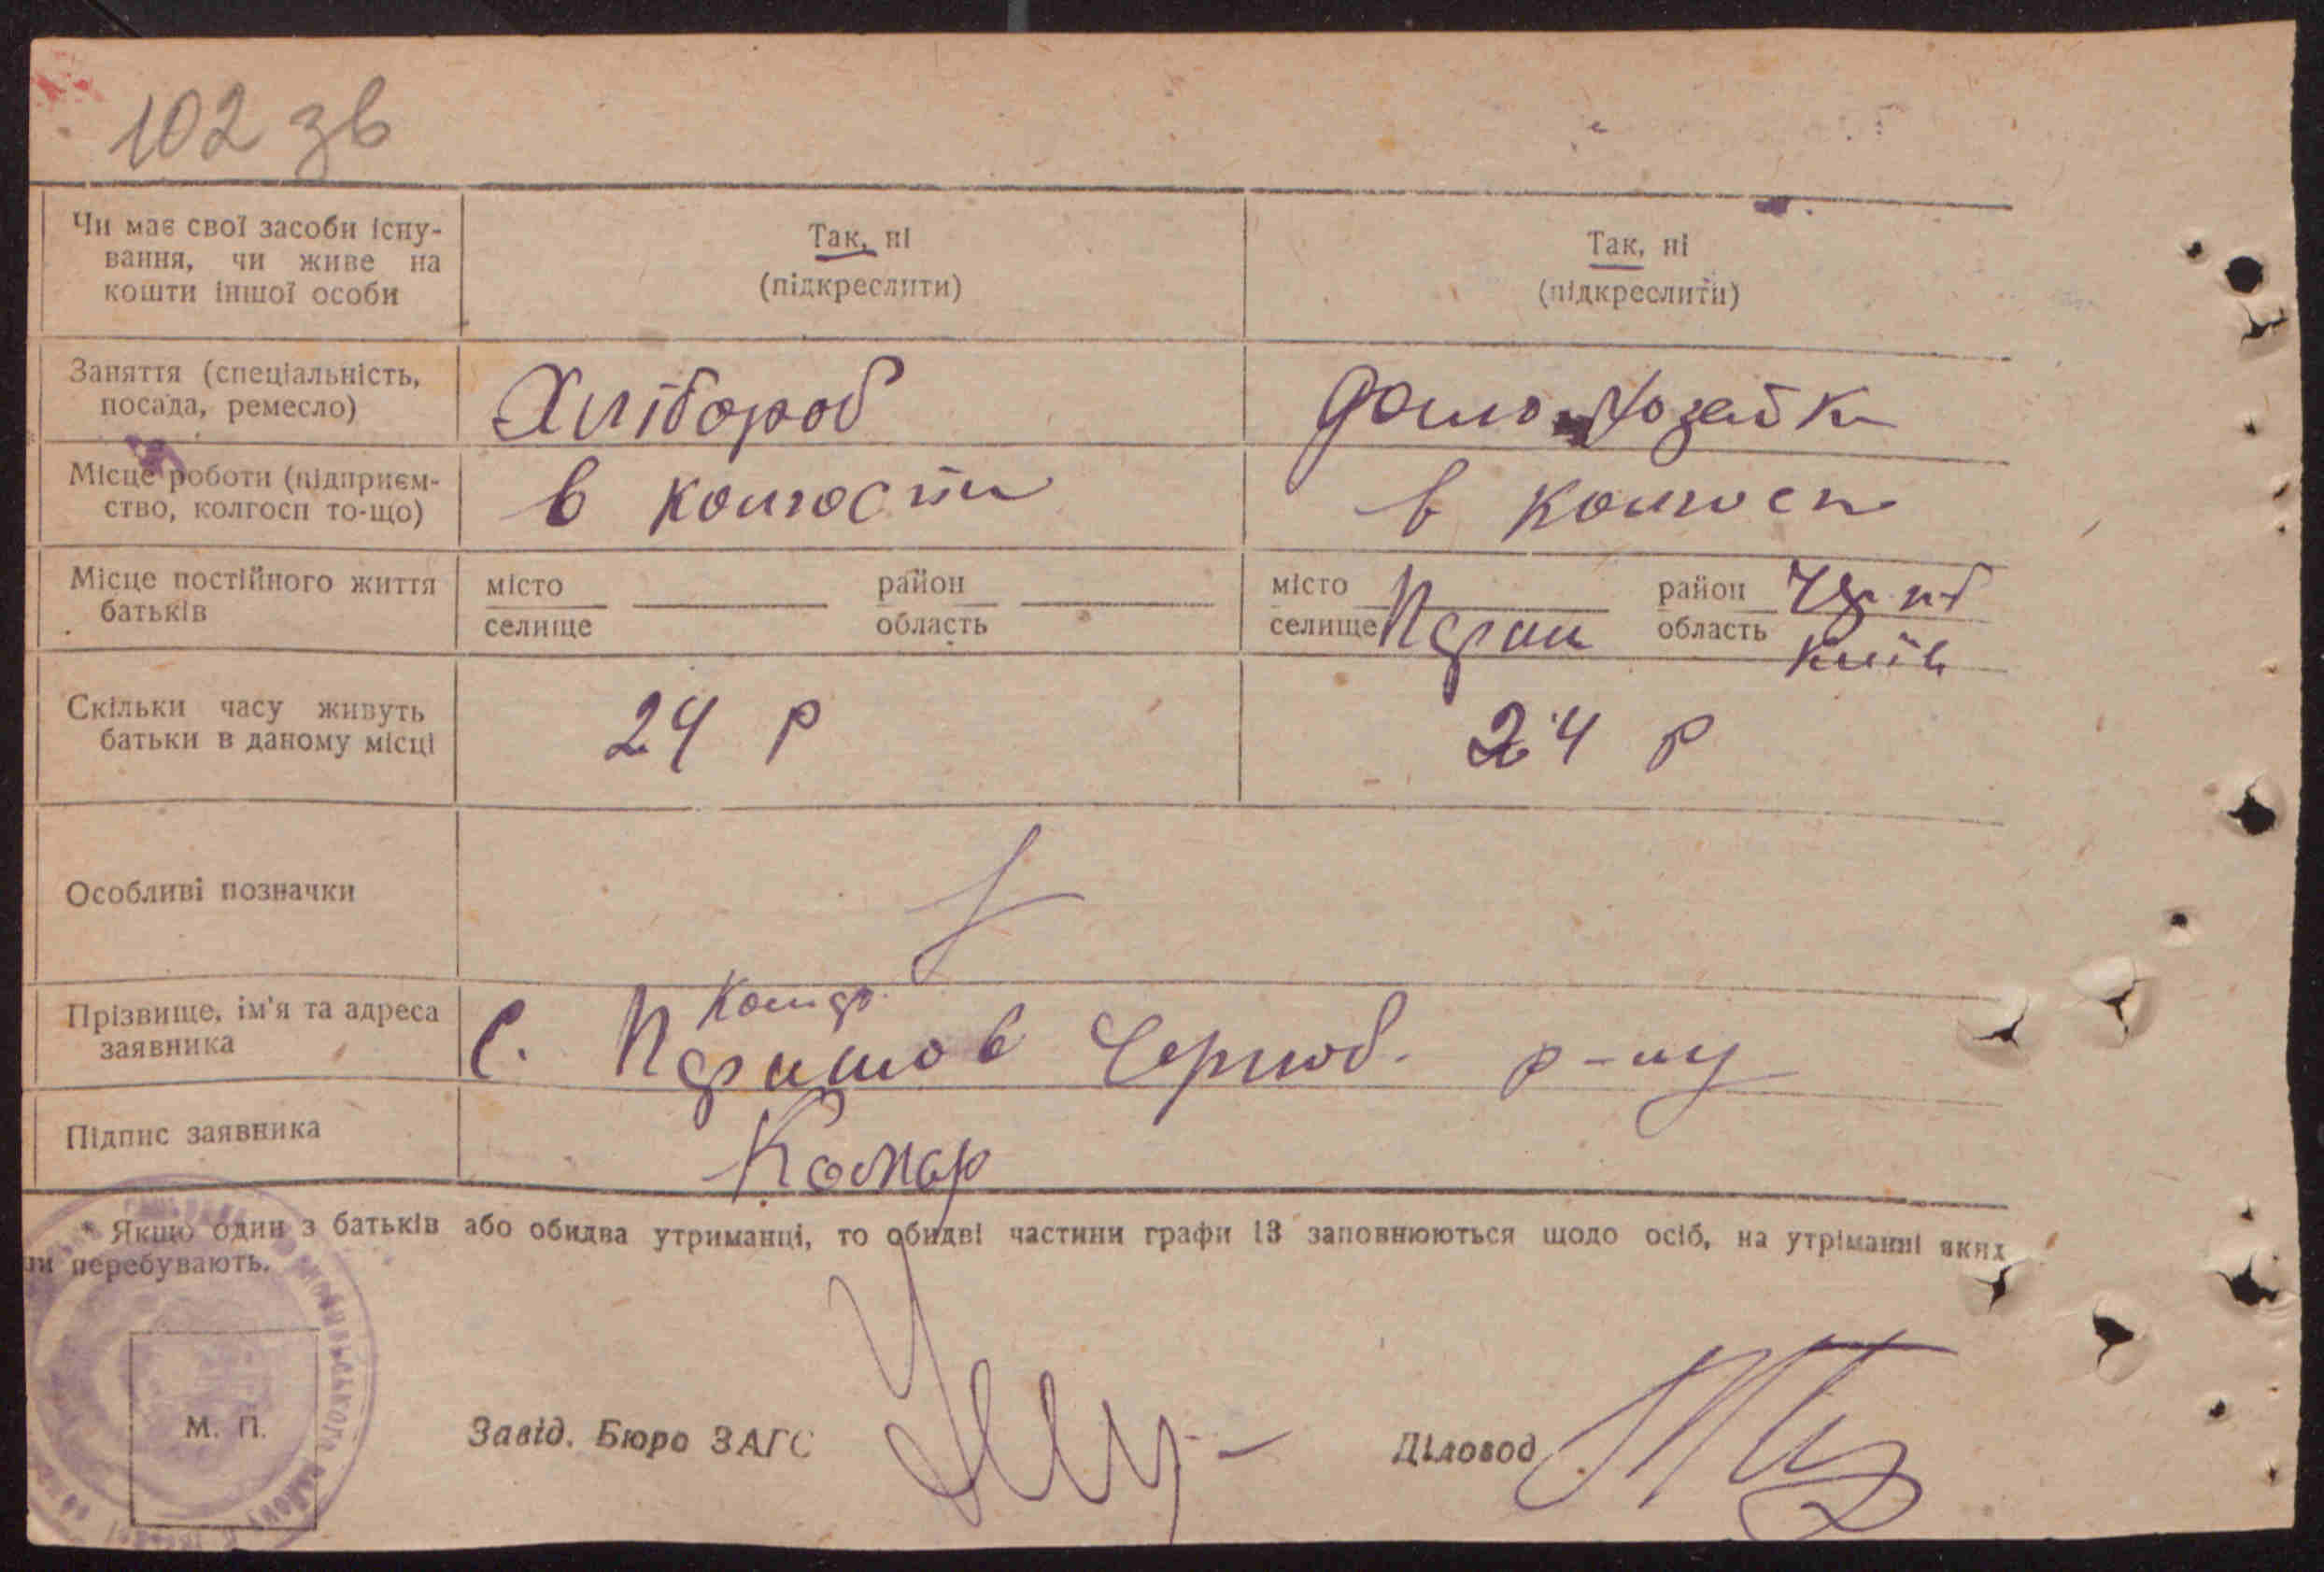 102 зв
Чи має свої засоби існу-
вання, чи живе на
кошти іншої особи
Так, ні
(підкреслити)
Так, ні
(підкреслити)
Заняття (спеціальність,
посада, ремесло)
Хлібороб
домохозяйка
Місце роботи (підприєм-
ство, колгосп то-що)
в колгоспі
в колгосп
Місце постійного життя
батьків
місто
селище
район
область
місто
селище
район
область
Київ
Скільки часу живуть
батьки в даному місці
24 р
24 р
Особливі позначки
Прізвище, ім'я та адреса
заявника
с. Черноб. р-ну
Підпис заявника
Комар
* Якщо один з батьків або обидва утриманці, то обидві частини графи 13 заповнюються щодо осіб, на утріманні яких
ни перебувають.
М. П.
Завід. Бюро ЗАГС
Діловод